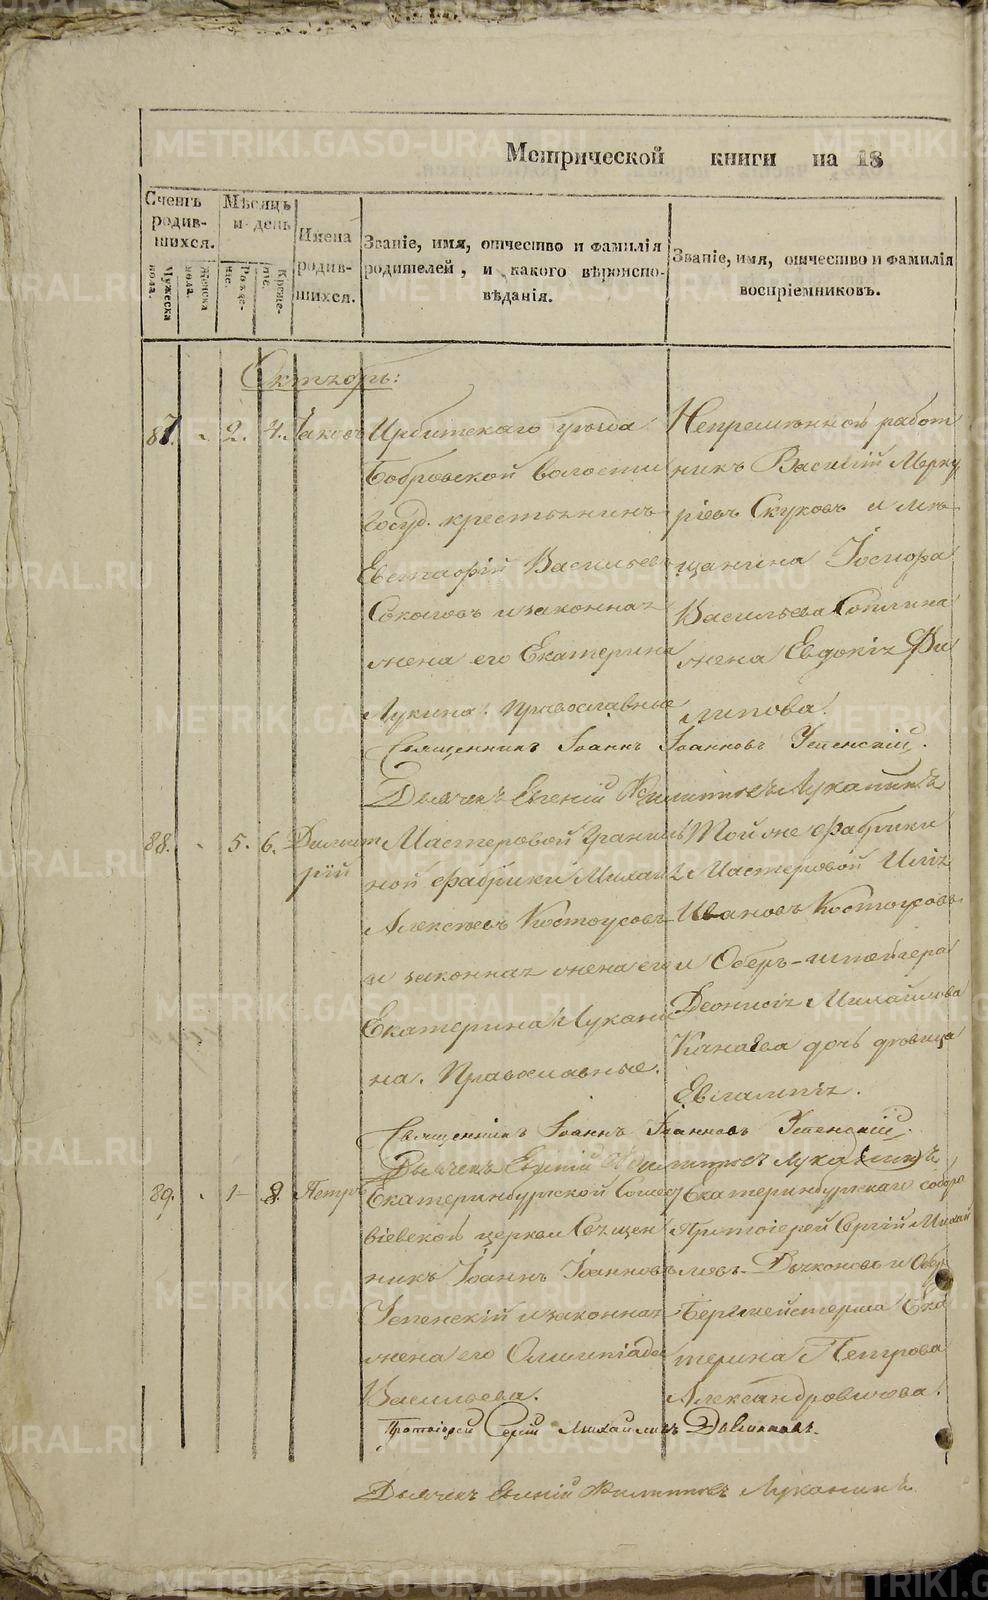 Метрической книги на 18
Счетъ родив-шихся.
Мужеска пола.
Женска пола.
Мѣсяцъ и день
Рожде-ніе.
Креще-ніе.
Имена родив-шихся.
Званіе, имя, отчество и фамилія
родителей, и какого вѣроиспо-
вѣданія.
Званіе, имя, отчество и фамилія
воспріемниковъ.
Октябрь:
87. - 2. 4. Іаковъ
Ирбитскаго уѣзда
Бобровской волости
Госуд. крестьянинъ
Евстафій Васильевъ
Соколовъ и законная
жена его Екатерина
Лукина. Православные
Непремѣнной работ
никъ Василій Мерку
ріевъ Скуковъ и мѣ-
щанина Іосифа
Васильева Сопилина
жена Евдокія Фи
липова.
Священникъ Іоаннъ Іоанновъ Успенскій.
Дьячекъ Евгеній Филипповъ Луканинъ
88. - 5. 6. Димит
рій
Мастеровой Граниль
ной фабрики Михаилъ
Алексѣевъ Костоусовъ
и законная жена его
Екатерина Лукани
на. Православные.
Той же фабрики
Мастеровой Илія
Ивановъ Костоусовъ
и Оберъ-штейгера
Деонисія Михайлова
Канаева дочь дѣвица
Евлампія.
Священникъ Іоаннъ Іоанновъ Успенскій.
Дьячекъ Евгеній Филипповъ Луканинъ
89. - 1 8. Петръ
Екатеринбургской Соше
віевской церкви Священ
никъ Іоаннъ Іоанновъ
Успенскій и законная
жена его Олимпіада
Васильева.
Екатеринбургскаго собора
Протоіерей Сергій Михай
ловъ Дьяконовъ и Обер
Бергмейстерша Ека
терина Петрова
Александровичова.
Протоіерей Сергій Михайловъ Дьяконовъ.
Дьячекъ Евгеній Филипповъ Луканинъ
METRIKI.GASO-URAL.RU